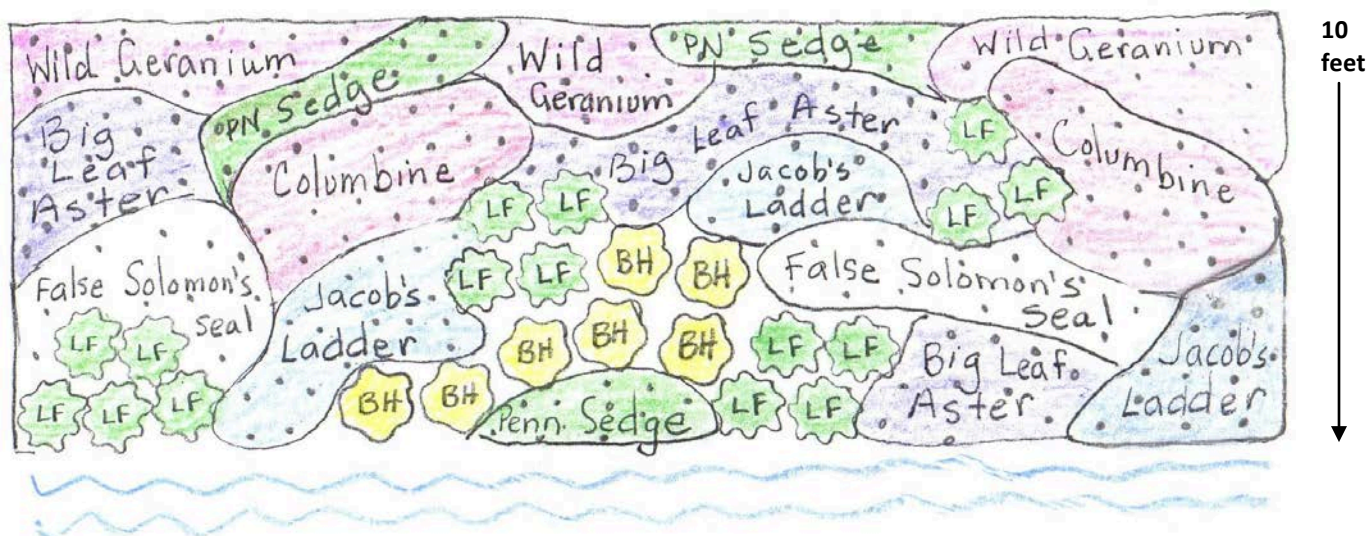 Wild Geranium
PN Sedge
Wild
Geranium
PN Sedge
Wild Geranium
10
feet
Big
Leaf
Aster
Columbine
Big Leaf Aster
LF
Columbine
Jacob's
Ladder
LF
LF
LF
LF
False Solomon's
Seal
Jacob's
Ladder
LF
LF
BH
BH
False Solomon's
Seal
LF
LF
BH
BH
BH
LF
LF
Big Leaf
Aster
Jacob's
Ladder
LF
LF
LF
BH
BH
Penn. Sedge
LF
LF